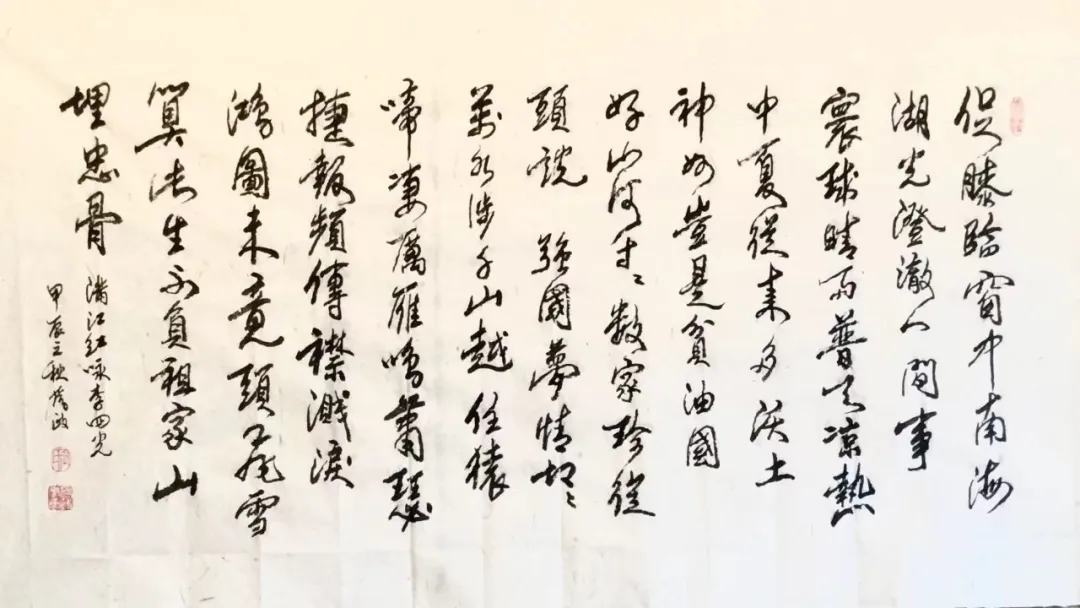 促膝臨窗中南海
湖光澄澈人間事
寰球晴雨普天凉熱
中夏從來多沃土
神州豈是貧油國
好山河件〻數家珍從
頭說 强國夢情切〻
萬水涉千山越任猿
啼凄厲雁鳴蕭瑟
捷報頻傳襟濺淚
鴻圖未竟頭飛雪
算此生不負祖家山
埋忠骨
滿江紅咏李四光
甲辰之秋